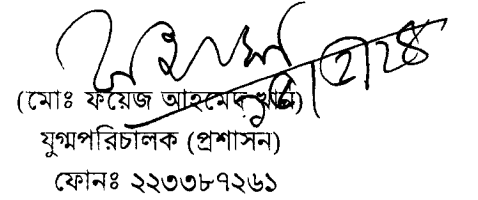 (মোঃ ফয়েজ আহমেদ খান)
যুগ্মপরিচালক (প্রশাসন)
ফোনঃ ২২৩৩৮৭২৬১